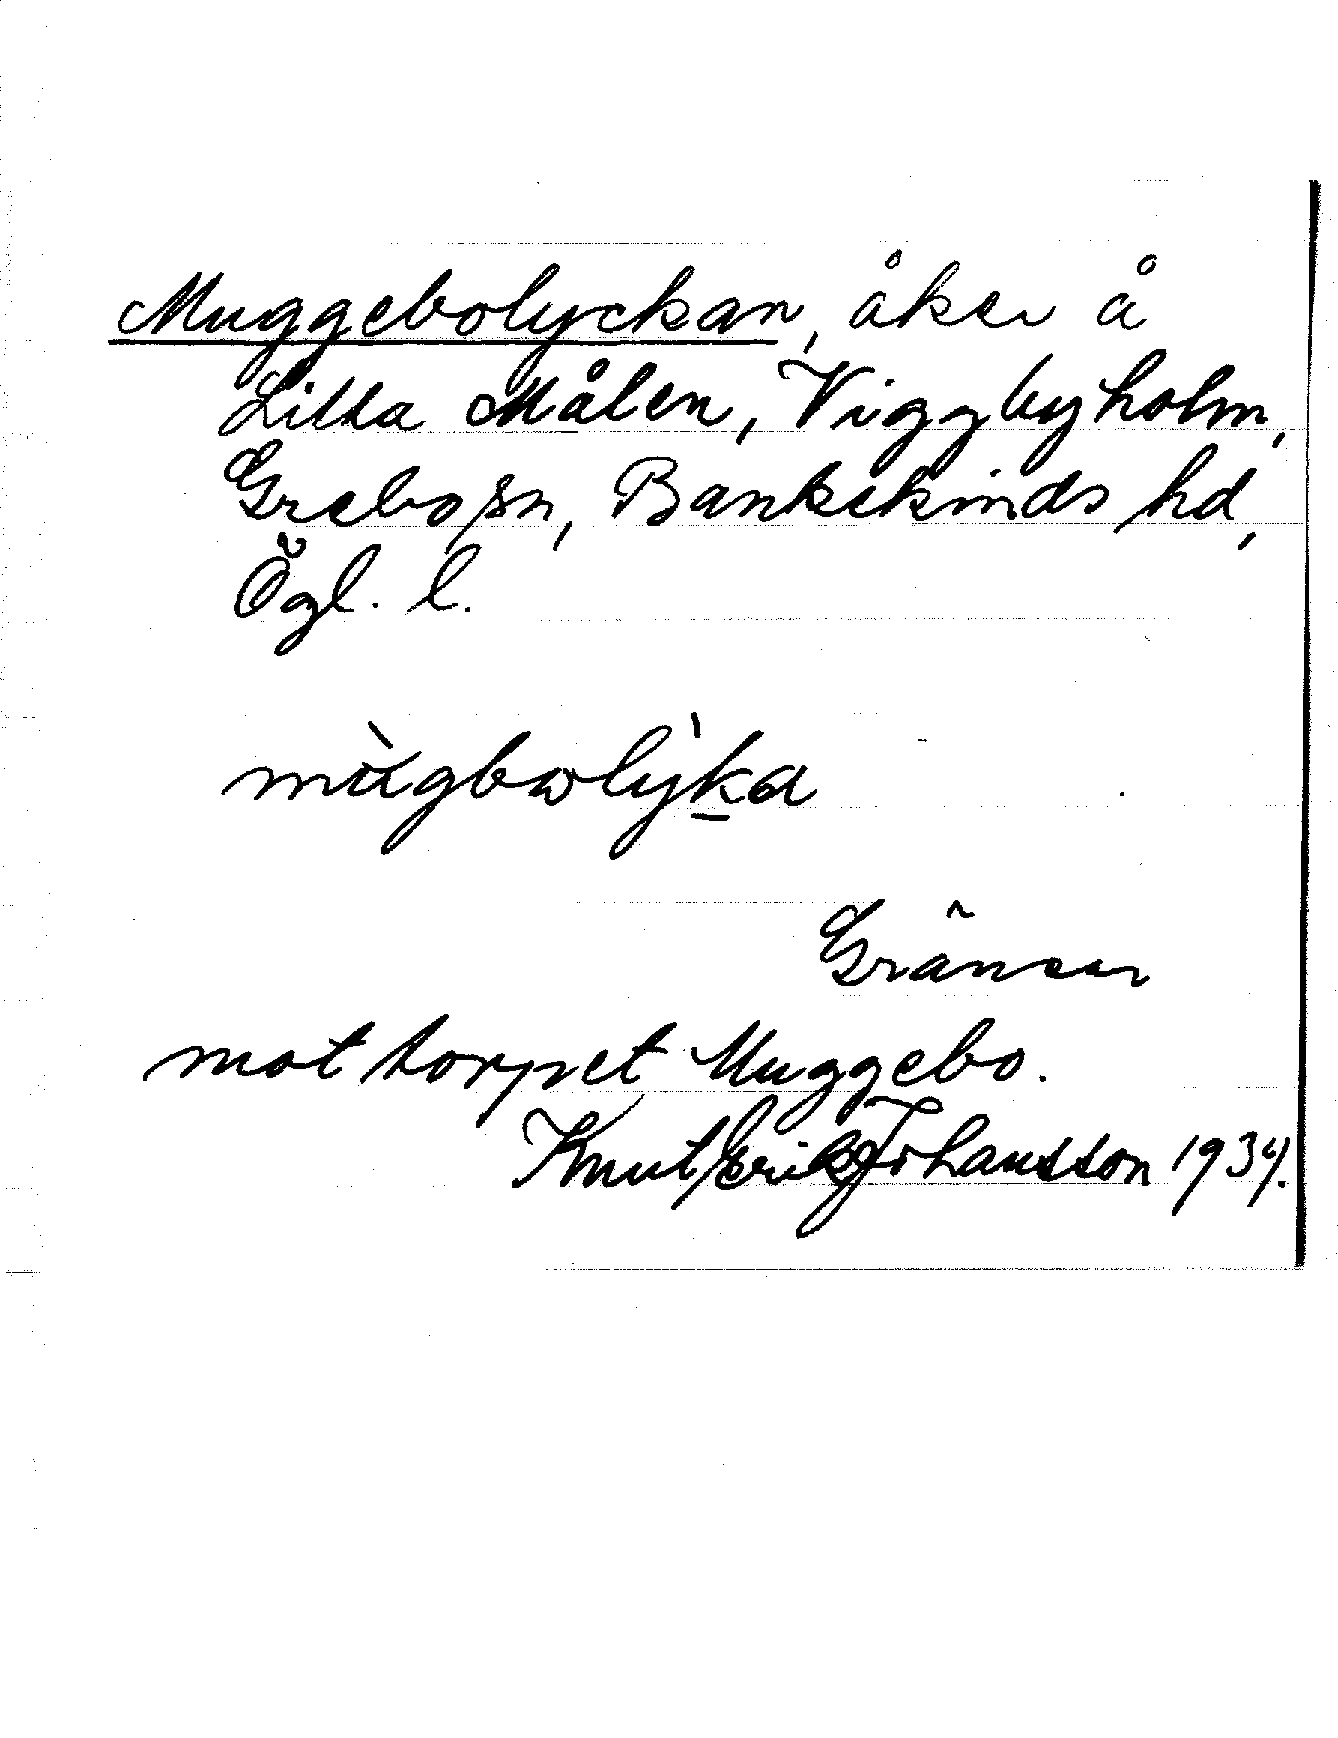 Muggebolyckan, åker å
Lilla Målen, Viggbyholm,
Grebo sn, Bankekinds hd,
Ögl. l.
mùgbωlỳka
Gränsar
mot torpet Muggebo.
Knut Erik Johansson 1934.